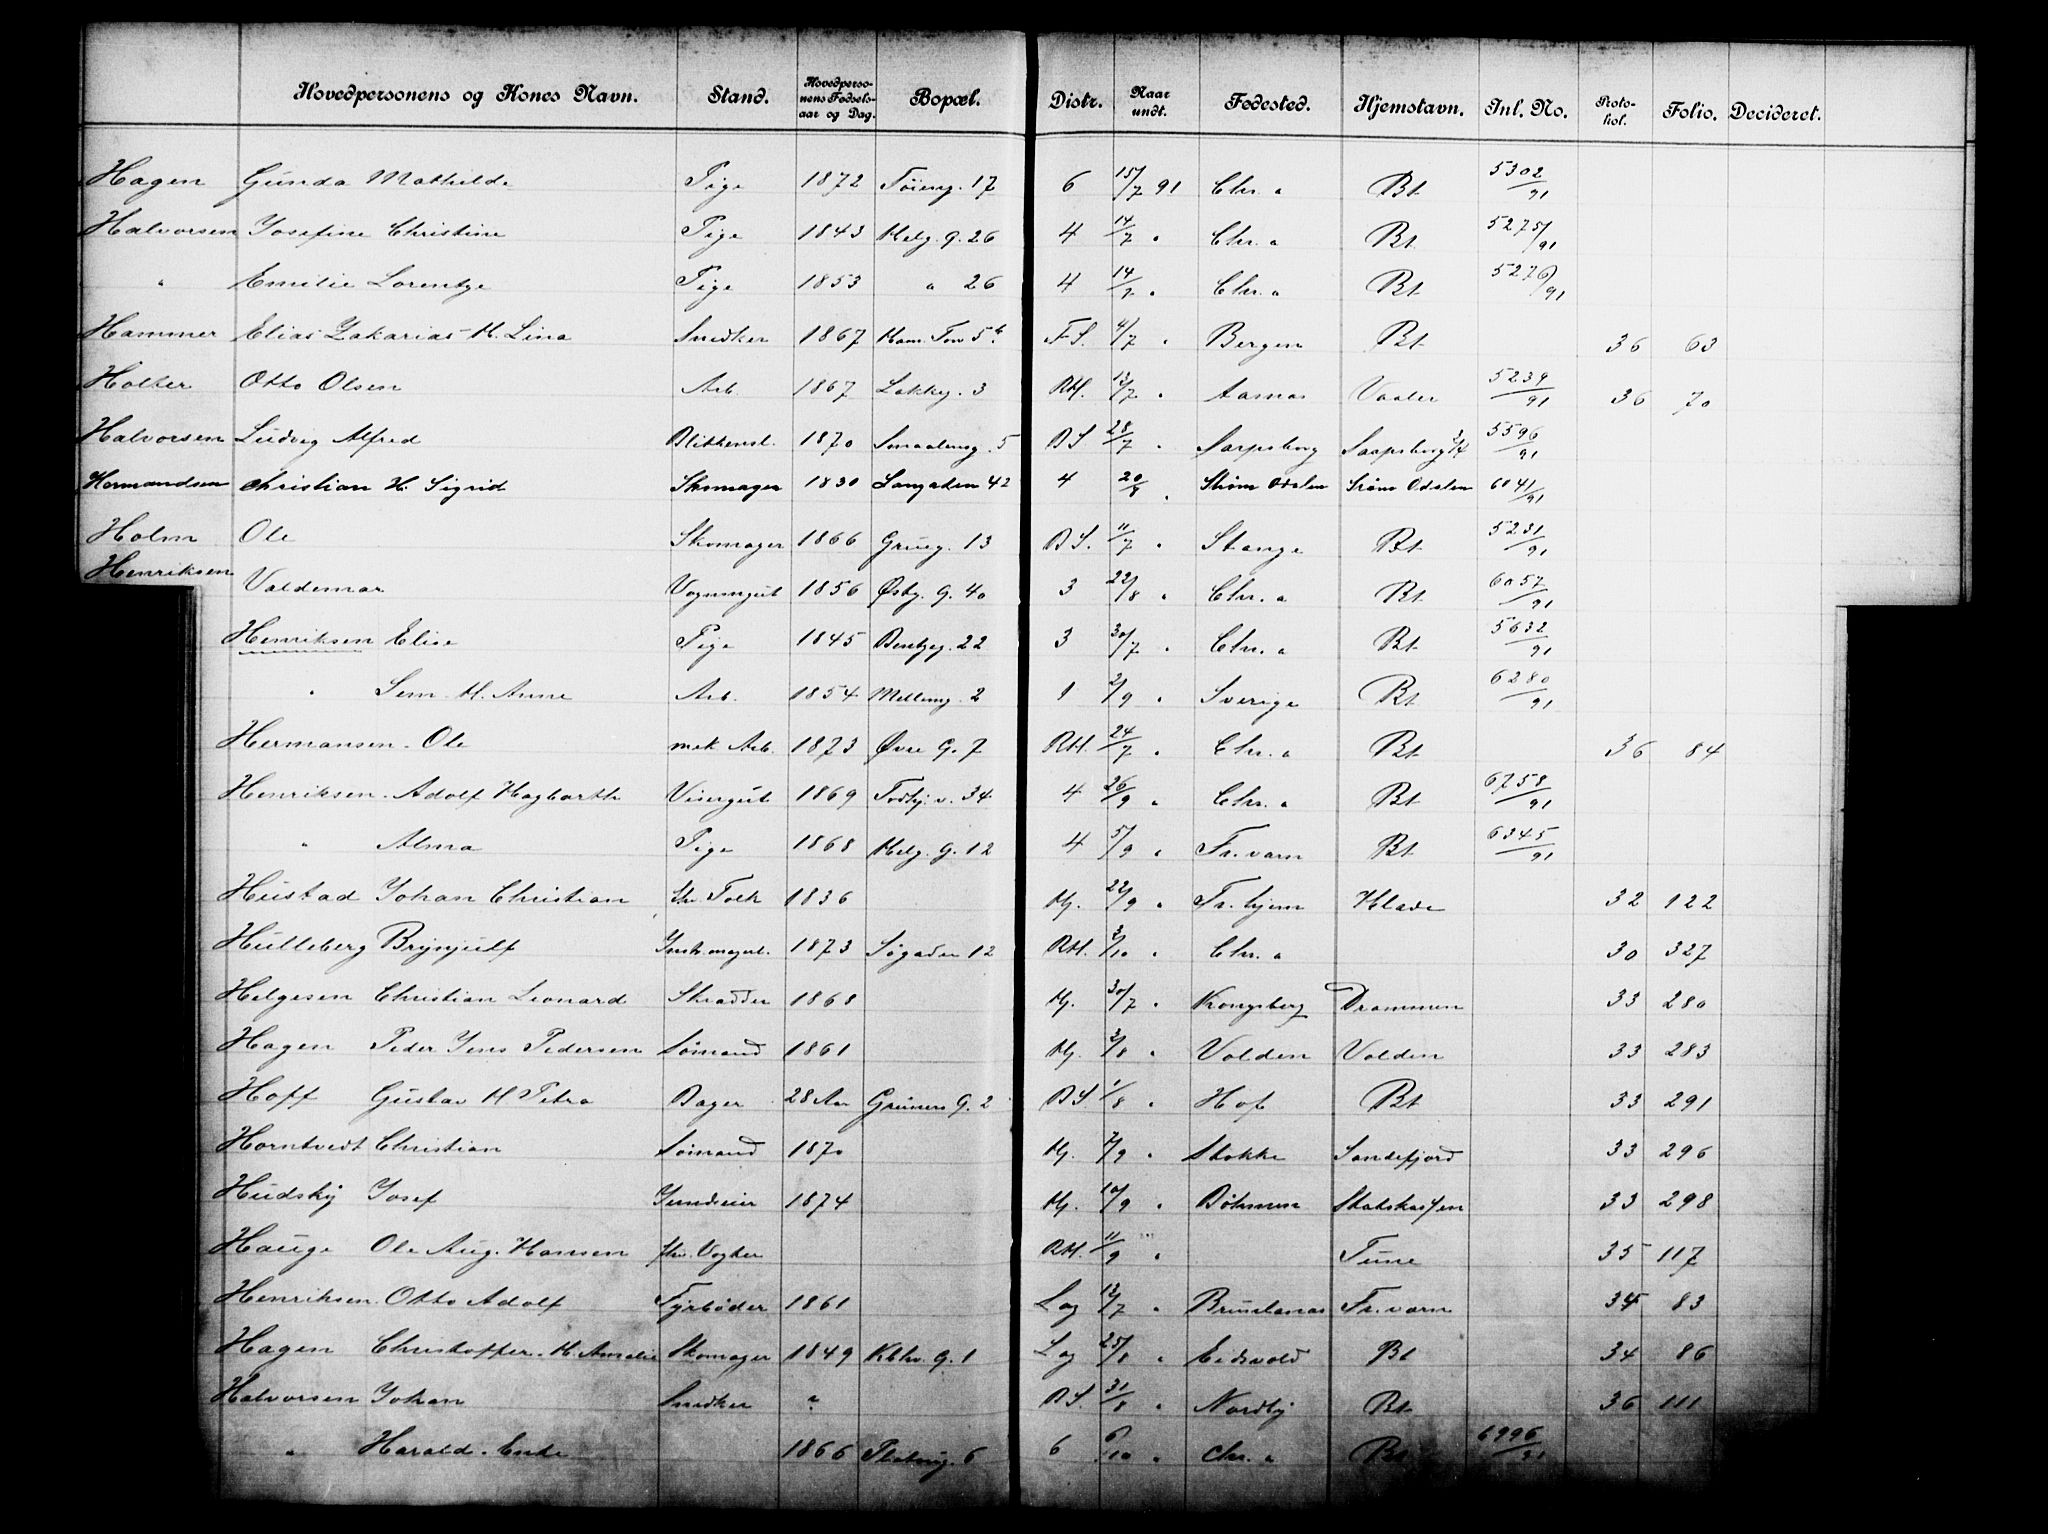 Hovedpersonens og Kones Navn. Stand. Hovedpersonens Fødselsaar og Dag. Bopæl. Distr. Naar undt. Fødested. Hjemstavn. Inl. No. Protokol. Folio. Decideret.
Hagen Gunda Mathilde Pige 1872 Tøieng. 17 6 15/7 91 Chr.a Bt 5302/91
Halvorsen Josefine Christine Pige 1843 Helg. g. 26 4 14/7 " Chr.a Bt 5275/91
" Emilie Lorentze Pige 1853 " 26 4 14/7 " Chr.a Bt 5276/91
Hammer Elias Zakarias H. Lina Snedker 1867 Ham. Tow 5b F.S. 4/7 " Bergen Bt 36 63
Holter Otto Olsen Arb. 1867 Lakkg. 3 RH. 13/7 " Aasnas Vaaler 5239/91 36 70
Halvorsen Ludvig Alfred Blikkensl. 1870 Smaaleng. 5 BS 28/7 " Sarpsborg Sarpsborg 5596/91
Hermandsen Christian H. Sigrid Skomager 1830 Langaden 42 4 20/8 " Strøm Odalen Strøm Odalen 6041/91
Holm Ole Skomager 1866 Grueg. 13 BS. 11/7 " Stange Bt 5231/91
Henriksen Valdemar Vognmgut 1856 Østg. G. 40 3 22/8 " Chr.a Bt 6057/91
Henriksen Elise Pige 1845 Bentzeg. 22 3 30/7 " Chr.a Bt 5632/91
" Sem. H. Anne Arb. 1854 Mellemg. 2 1 2/9 " Sverige Bt 6280/91
Hermansen. Ole mek Arb. 1873 Øvre G. 7 RH. 24/7 " Chr.a Bt 36 84
Henriksen. Adolf Hagbarth Visergut 1869 Fredbj. v. 34 4 26/9 " Chr.a Bt 6758/91
" Alma Pige 1868 Helg. G. 12 4 5/9 " Fr.værn Bt 6345/91
Hustad Johan Christian Skr. Tolk 1836 Hj. 22/9 " Tr.hjem Hlade 32 122
Hulleberg Brynjulf Instr.magerl. 1873 Søgaden 12 RH. 3/10 " Chr.a 30 327
Helgesen Christian Leonard Skrædder 1868 Hj. 30/7 " Kongsberg Drammen 33 280
Hagen Peder Jens Pedersen Sømand 1861 Hj. 3/8 " Volden Volden 33 283
Hoff Gustav H Petra Bager 28 Aar Grüners G. 2 BS. 1/8 " Hof Bt 33 291
Horntvedt Christian Sømand 1870 Hj. 7/9 " Stokke Sandefjord 33 296
Hudsky Josef 1874 Hj. 10/9 " Bøhmen Statskassen 33 298
Hauge Ole Aug. Hansen fhv. Vogter RH. 11/9 " Tune 35 117
Henriksen. Otto Adolf Fyrbøder 1861 Log 13/7 " Brunlanæs Fr.værn 34 83
Hagen Christoffer. H. Amalie Skomager 1849 Kbhv. G. 1 Log 25/8 " Eidsvold Bt 34 86
Halvorsen Johan Snedker " BS. 31/8 " Nordby Bt 36 111
" Harald. Enke 1866 Platoug. 6 6 6/10 " Chr.a Bt 6996/91